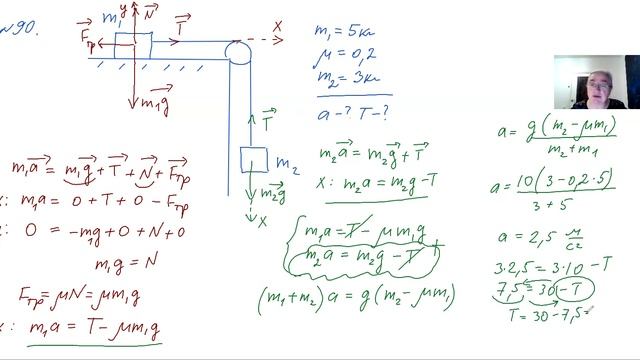 №90.
m₁
y
N⃗
T⃗
x
F⃗тр
m₁g⃗
T⃗
m₂
m₂g⃗
x
m₁ = 5кг
μ = 0,2
m₂ = 3кг
a - ? T - ?
m₁a⃗ = m₁g⃗ + T⃗ + N⃗ + F⃗тр
: m₁a = 0 + T + 0 - Fтр
: 0 = -m₁g + 0 + N + 0
m₁g = N
Fтр = μN = μm₁g
: m₁a = T - μm₁g
m₂a⃗ = m₂g⃗ + T⃗
x: m₂a = m₂g - T
{ m₁a = T - μm₁g
m₂a = m₂g - T +
(m₁ + m₂) a = g (m₂ - μm₁)
a = g (m₂ - μm₁) / m₂ + m₁
a = 10 (3 - 0,2·5) / 3 + 5
a = 2,5 м/с²
3·2,5 = 3·10 - T
7,5 = 30 - T
T = 30 - 7,5 =